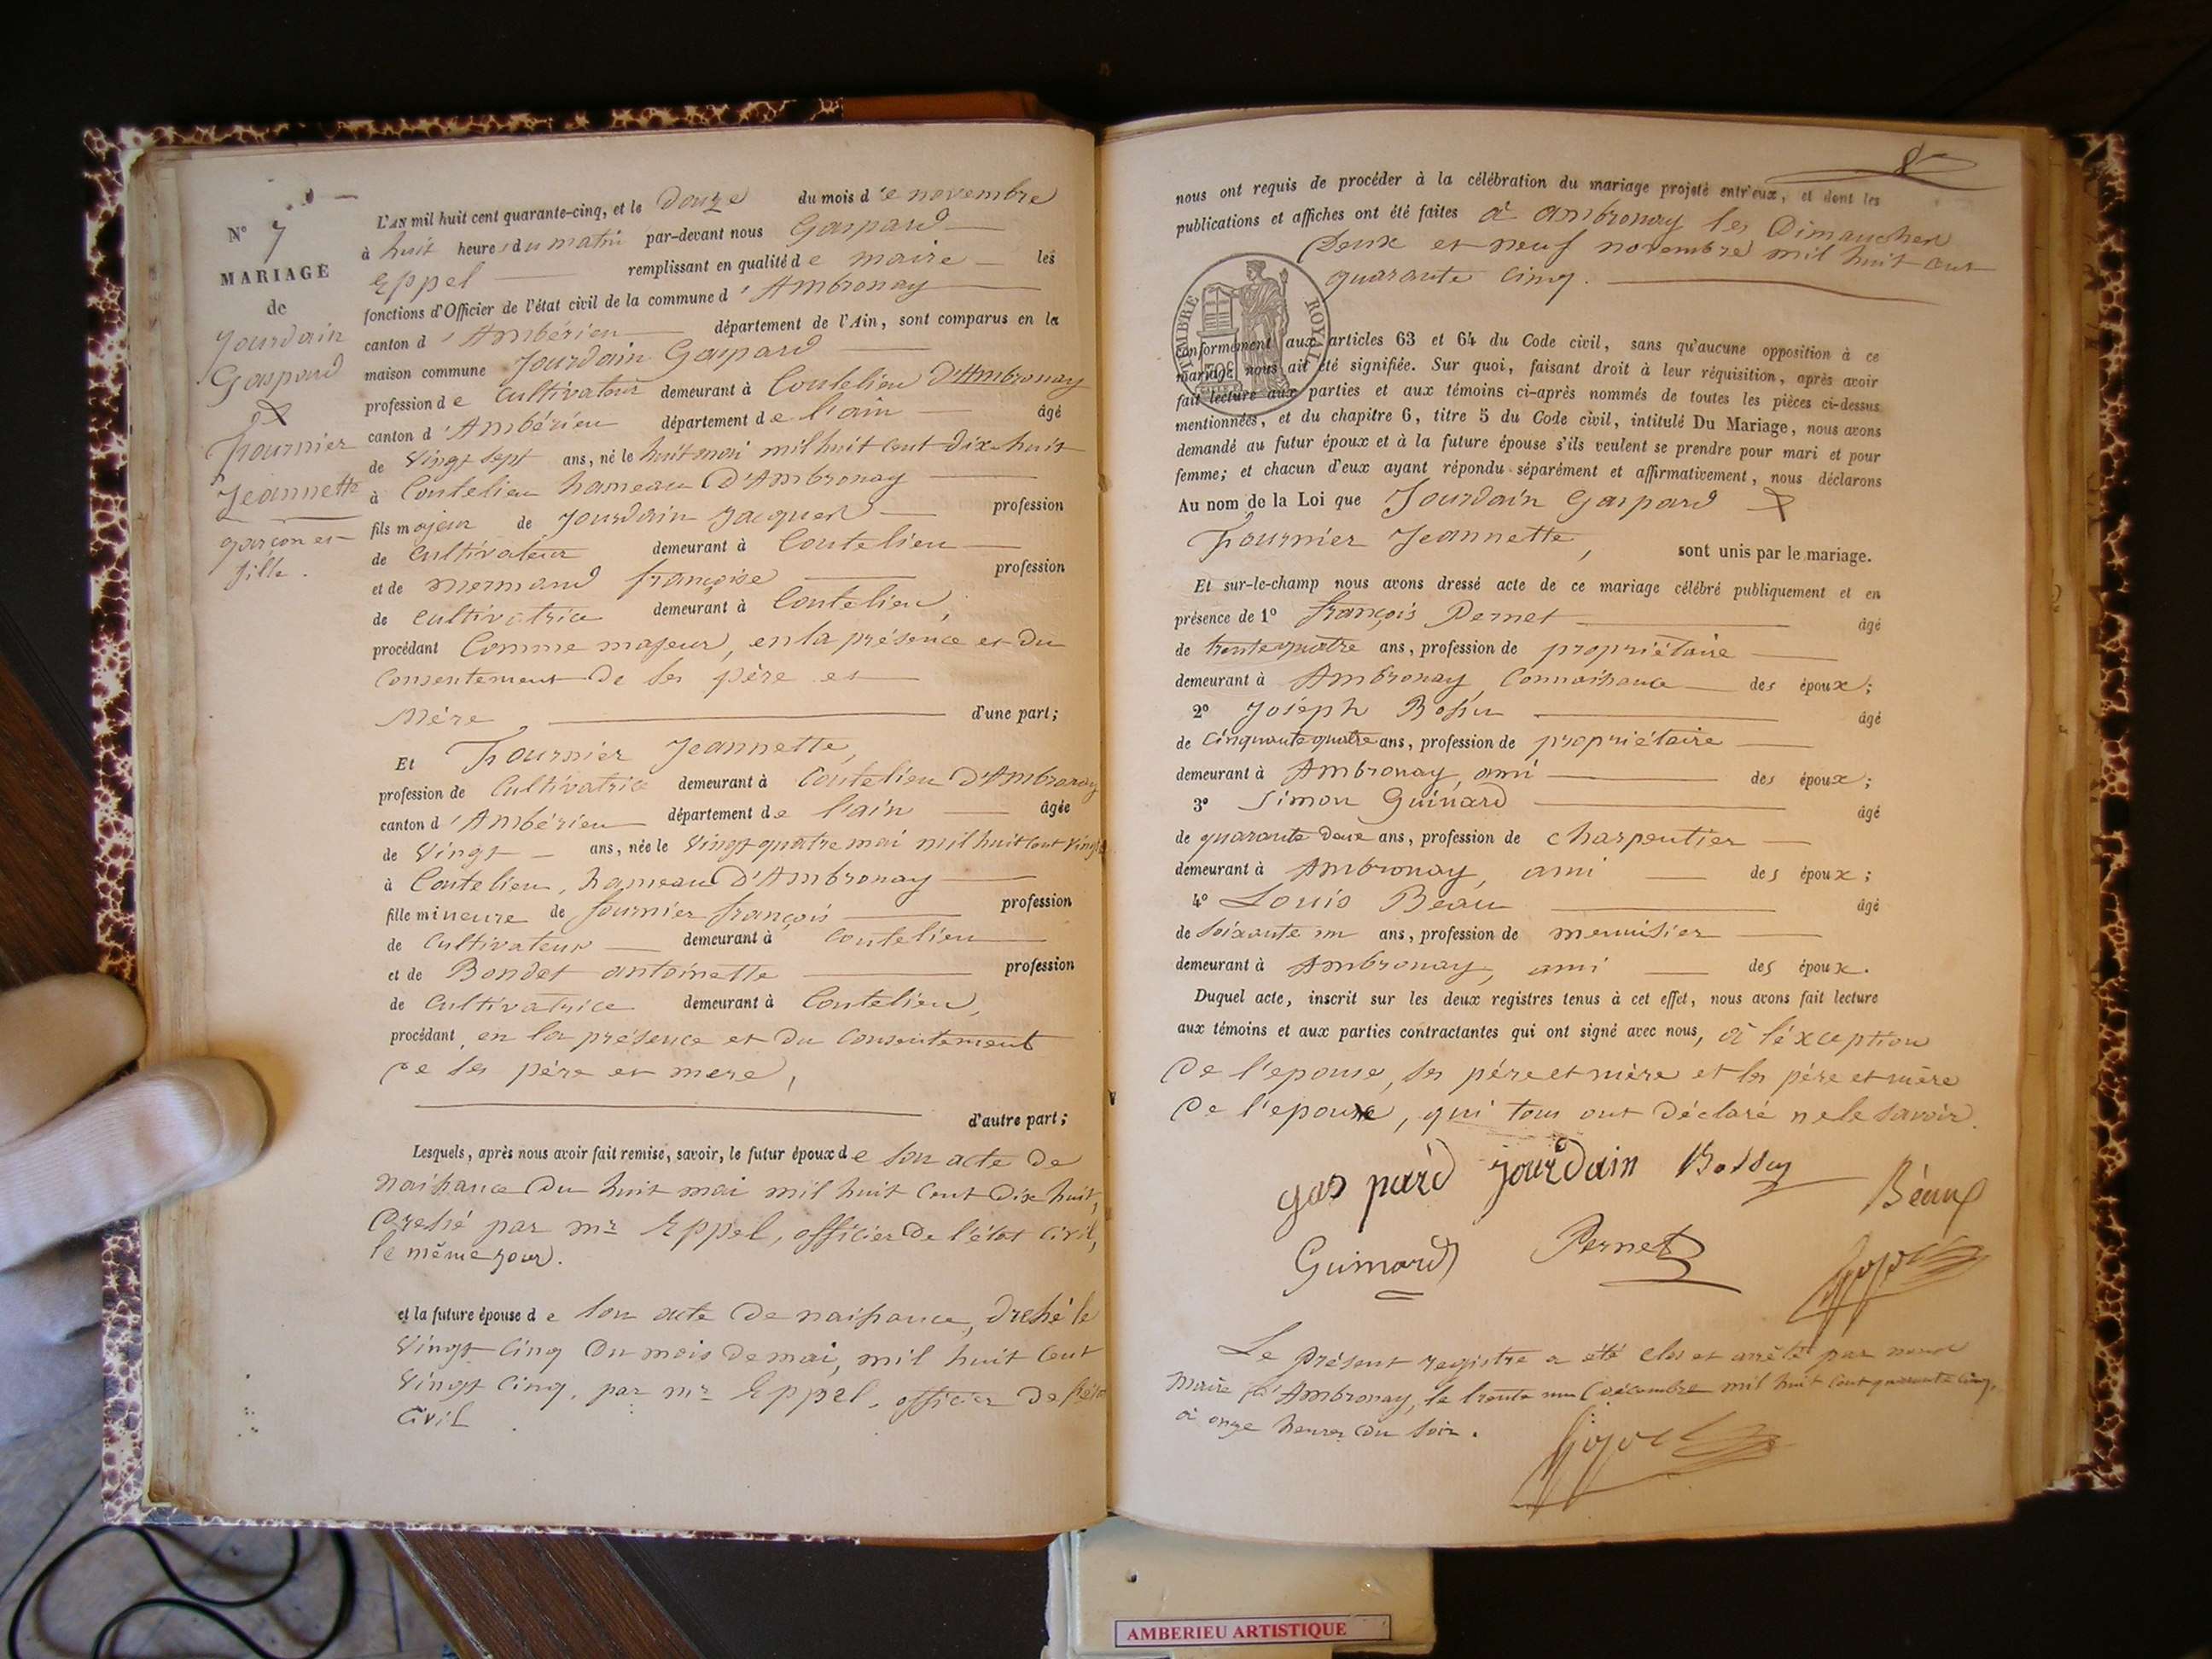 N° 7
MARIAGE
de
Jourdain
Gaspard
&
Fournier
Jeannette
garçon et
fille.
L'AN mil huit cent quarante-cinq, et le Douze du mois de novembre
à huit heures du matin par-devant nous Gaspard
Eppel remplissant en qualité de maire les
fonctions d'Officier de l'état civil de la commune d'Ambronay
canton d'Ambérieu département de l'Ain, sont comparus en la
maison commune Jourdain Gaspard
profession de cultivateur demeurant à Coutelieu D'Ambronay
canton d'Ambérieu département de l'ain âgé
de Vingt sept ans, né le huit mai mil huit cent dix huit
à Coutelieu hameau D'Ambronay
fils majeur de Jourdain Jacques profession
de Cultivateur demeurant à Coutelieu
et de mermand françoise profession
de cultivatrice demeurant à Coutelieu,
procédant Comme majeur, en la présence et Du
Consentement De ses père et
Mère, d'une part;
Et Fournier Jeannette,
profession de Cultivatrice demeurant à Coutelieu D'Ambronay
canton d'Ambérieu département de l'ain âgée
de Vingt ans, née le Vingt quatre mai mil huit cent vingt
à Coutelieu, hameau D'Ambronay
fille mineure de fournier françois profession
de Cultivateur demeurant à Coutelieu
et de Bondet antoinette profession
de Cultivatrice demeurant à Coutelieu,
procédant, en la présence et du Consentement
De ses père et mere,
d'autre part;
Lesquels, après nous avoir fait remise, savoir, le futur époux de son acte De
naissance Du huit mai mil huit Cent Dix huit,
Dressé par mr Eppel, officier De l'état Civil,
le même jour.
et la future épouse de son acte De naissance, dressé le
Vingt Cinq Du mois De mai, mil huit Cent
Vingt Cinq, par mr Eppel, officier De l'état
Civil
8
nous ont requis de procéder à la célébration du mariage projeté entr'eux, et dont les
publications et affiches ont été faites à ambronay les Dimanches
Deux et neuf novembre mil huit cent
quarante cinq.
TIMBRE ROYAL
conformément aux articles 63 et 64 du Code civil, sans qu'aucune opposition à ce
mariage nous ait été signifiée. Sur quoi, faisant droit à leur réquisition, après avoir
fait lecture aux parties et aux témoins ci-après nommés de toutes les pièces ci-dessus
mentionnées, et du chapitre 6, titre 5 du Code civil, intitulé Du Mariage, nous avons
demandé au futur époux et à la future épouse s'ils veulent se prendre pour mari et pour
femme; et chacun d'eux ayant répondu séparément et affirmativement, nous déclarons
Au nom de la Loi que Jourdain Gaspard &
Fournier Jeannette, sont unis par le mariage.
Et sur-le-champ nous avons dressé acte de ce mariage célébré publiquement et en
présence de 1° François Pernet âgé
de trente quatre ans, profession de propriétaire
demeurant à Ambronay Connaissance des époux;
2° Joseph Bossu âgé
de Cinquante quatre ans, profession de propriétaire
demeurant à Ambronay, ami des époux;
3° Simon Guinard âgé
de quarante deux ans, profession de charpentier
demeurant à Ambronay, ami des époux;
4° Louis Béau âgé
de Soixante un ans, profession de menuisier
demeurant à Ambronay, ami des époux.
Duquel acte, inscrit sur les deux registres tenus à cet effet, nous avons fait lecture
aux témoins et aux parties contractantes qui ont signé avec nous, à l'éxception
De l'epouse, ses père et mère et les père et mère
De l'epoux, qui tous ont Déclaré ne le savoir.
gas pard jourdain Bossu Béaux
Guinard Pernet
Le présent registre a été clos et arrêté par nous
Maire D'Ambronay, le trente un Décembre mil huit Cent quarante Cinq,
à onze heures du Soir.
AMBERIEU ARTISTIQUE